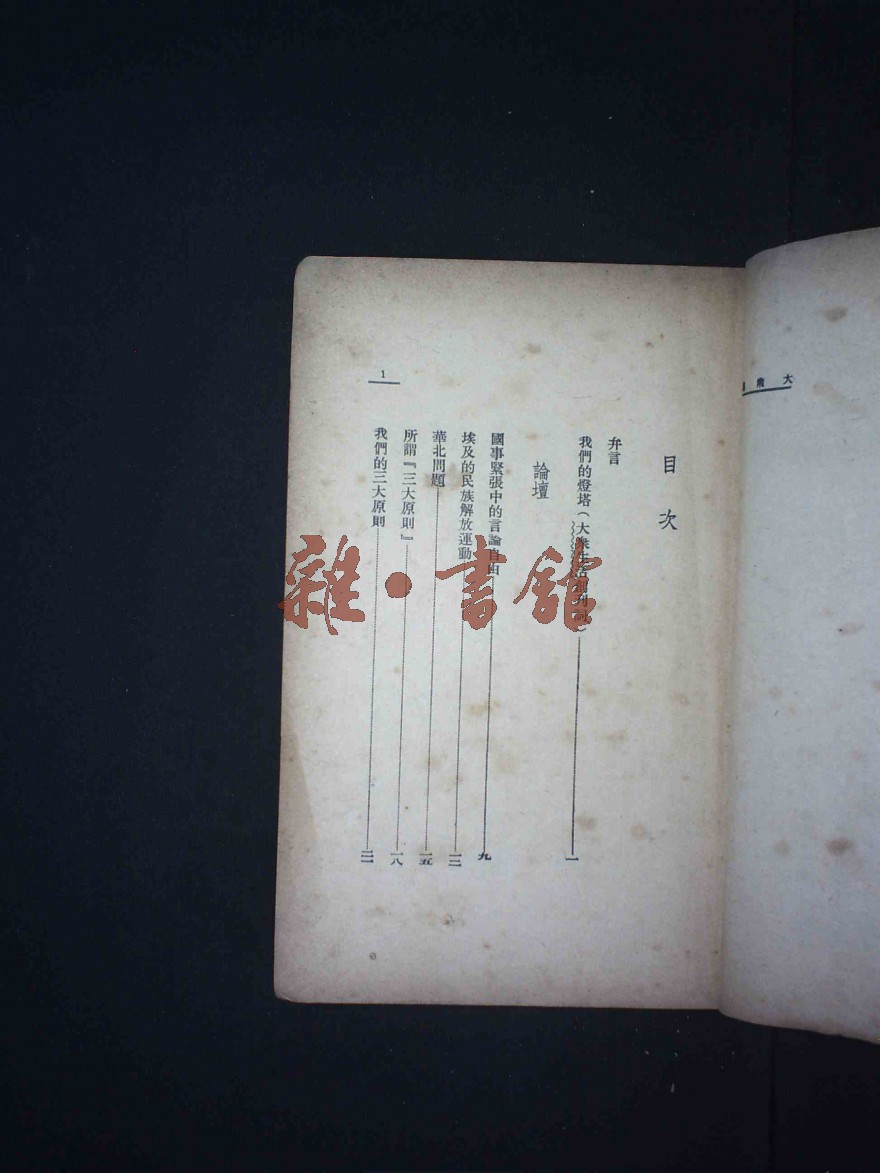 目次
弁言
我們的燈塔（大衆生活創刊詞）——一
論壇
國事緊張中的言論自由——九
埃及的民族解放運動——一二
華北問題——一五
所謂『三大原則』——一八
我們的三大原則——二一
1
大衆
雜·書館